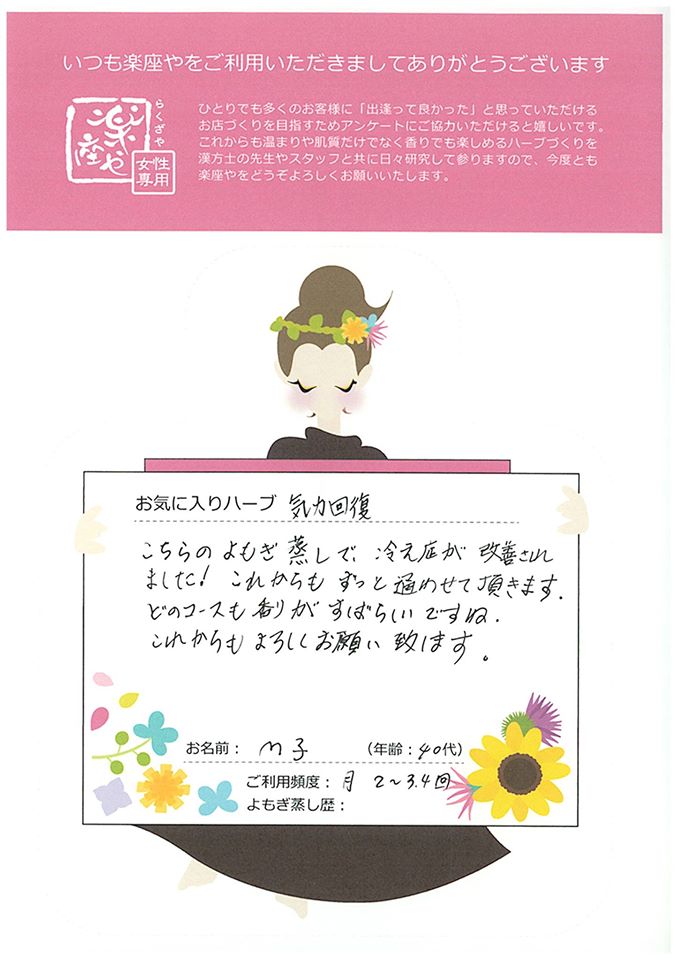 いつも楽座やをご利用いただきましてありがとうございます
らくざや
楽座や
女性専用
ひとりでも多くのお客様に「出逢って良かった」と思っていただける
お店づくりを目指すためアンケートにご協力いただけると嬉しいです。
これからも温まりや肌質だけでなく香りでも楽しめるハーブづくりを
漢方士の先生やスタッフと共に日々研究して参りますので、今度とも
楽座やをどうぞよろしくお願いいたします。
お気に入りハーブ 気力回復
こちらのよもぎ蒸しで、冷え症が改善され
ました! これからもずっと通わせて頂きます.
どのコースも香りがすばらしいですね.
これからもよろしくお願い致します。
お名前： M子 （年齢：40代）
ご利用頻度：月 2～3.4回
よもぎ蒸し歴：